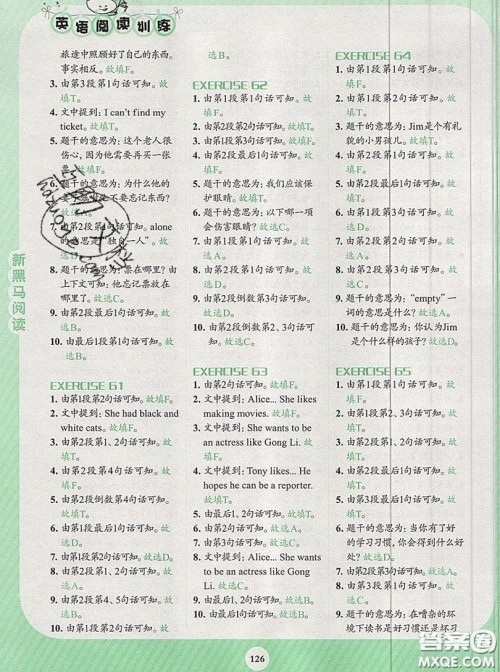 英语阅读训练
旅途中照顾好了自己的东西。
事实相反。故填F。
3. 由第3段第1句话可知。故
填T。
4. 文中提到: I can't find my
ticket. 故填T。
5. 题干的意思为: 这个老人很
伤心, 因为他需要再买一张
6. 题干的意思为: 为什么他的
忘记东西?
7. alone
的意思是“独自一人”。故
8. 题干的意思为: 票在哪里? 由
上下文可知: 他忘记票放在
哪里了。故选C。
9. 由第2段最后1句话可知。故
选B。
10. 由最后1句话可知。故选D。
EXERCISE 61
1. 由第1段第2句话可知。故填F。
2. 文中提到: She had black and
white cats. 故填F。
3. 由第2段第1、2句话可知。故
填T。
4. 由第2段第4句话可知。故
填T。
5. 由第2段倒数第2句话可知。
故填F。
6. 由第1段第1句话可知。故
选D。
7. 由第1段第2句话可知。故选D。
8. 由第2段第2句话可知。故
选B。
9. 由第2段第4、5句话可知。故
选B。
10. 由第2段第2句话可知。故
选B。
EXERCISE 62
1. 由第1段第1句话可知。故
填T。
2. 由第2段第1句话可知。故
填F。
3. 由第2段第2句话可知。故
填T。
4. 由第2段第4句话可知。故
填F。
5. 题干的意思为: 我们应该保
护眼睛。故填T。
6. 题干的意思为: 以下哪一项
会伤害眼睛? 故选C。
7. 由第2段第2句话可知。故
选D。
8. 由第2段第3句话可知。故
选B。
9. 由第2段倒数第3句话可知。
故选B。
10. 由第2段倒数第2句话可知。
故选C。
EXERCISE 63
1. 文中提到: Alice... She likes
making movies. 故填F。
2. 文中提到: She wants to be
an actress like Gong Li. 故
填F。
4. 文中提到: Tony likes... He
hopes he can be a reporter.
故填T。
5. 由最后1、2句话可知。故填T。
6. 由第2段第1句话可知。故选A。
7. 由最后1句话可知。故选C。
8. 文中提到: Alice... She wants
to be an actress like Gong
Li. 故选A。
9. 由第2段最后1句话可知。故
选D。
10. 由最后1、2句话可知。故选B。
EXERCISE 64
1. 由第1段第1句话可知。故
填T。
2. 由第1段第3句话可知。故
填F。
3. 题干的意思为: Jim是个有礼
貌的小男孩儿。故填T。
4. 由第2段第1句话可知。故
填F。
5. 由第3段第1句话可知。故
填F。
6. 由第1段第1句话可知。故
选A。
7. 由第1段第3句话可知。故
选D。
8. 由第3段第1句话可知。故
选B。
9. 题干的意思为: “empty” 一
词的意思是什么? 故选A。
10. 题干的意思为: 你认为Jim
是个什么样的孩子? 故选D。
EXERCISE 65
1. 由第1段第2句话可知。故填F。
2. 由第1段第2、3句话可知。故
填T。
3. 由第2段最后1句话可知。故
填T。
4. 由第3段第1句话可知。故
填F。
5. 由第3段第2句话可知。故
填T。
6. 题干的意思为: 当你有了好
的学习习惯, 你会得到什么好
8. 由第3段第1句话可知。故
选A。
9. 题干的意思为: 在嘈杂的环
境下读书是好习惯还是坏习
新黑马阅读
126
答案圈
MXQE.COM